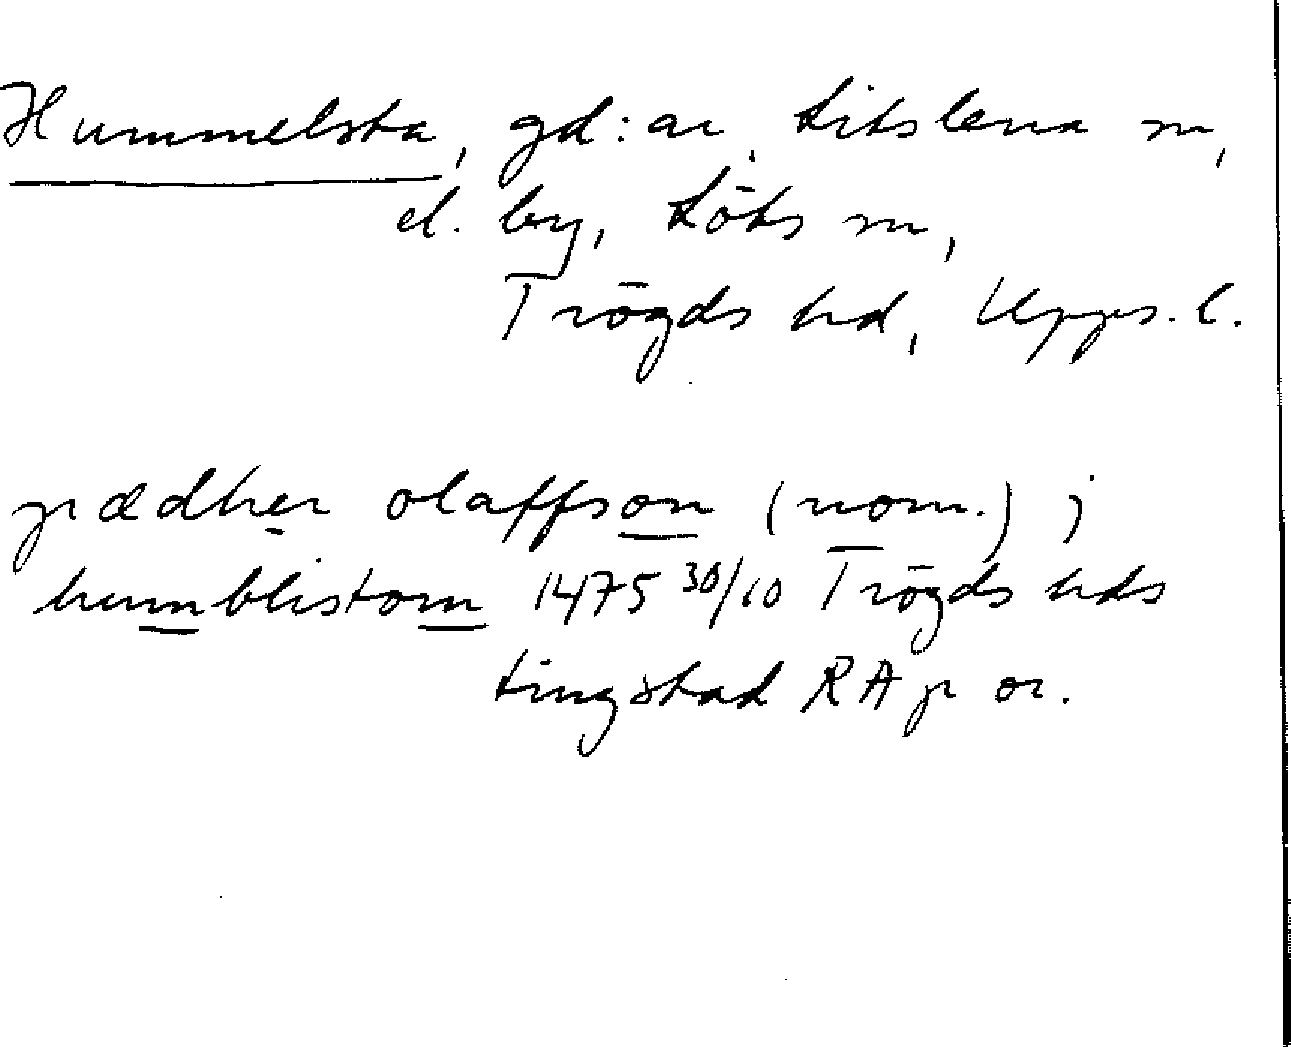 Hummelsta, gd:ar, Litslena sn,
el. by, Löts sn,
Trögds hd, Upps. l.
pædher olaffson (nom.) j
humblistom 1475 30/10 Trögds hds
tingstad RAp or.